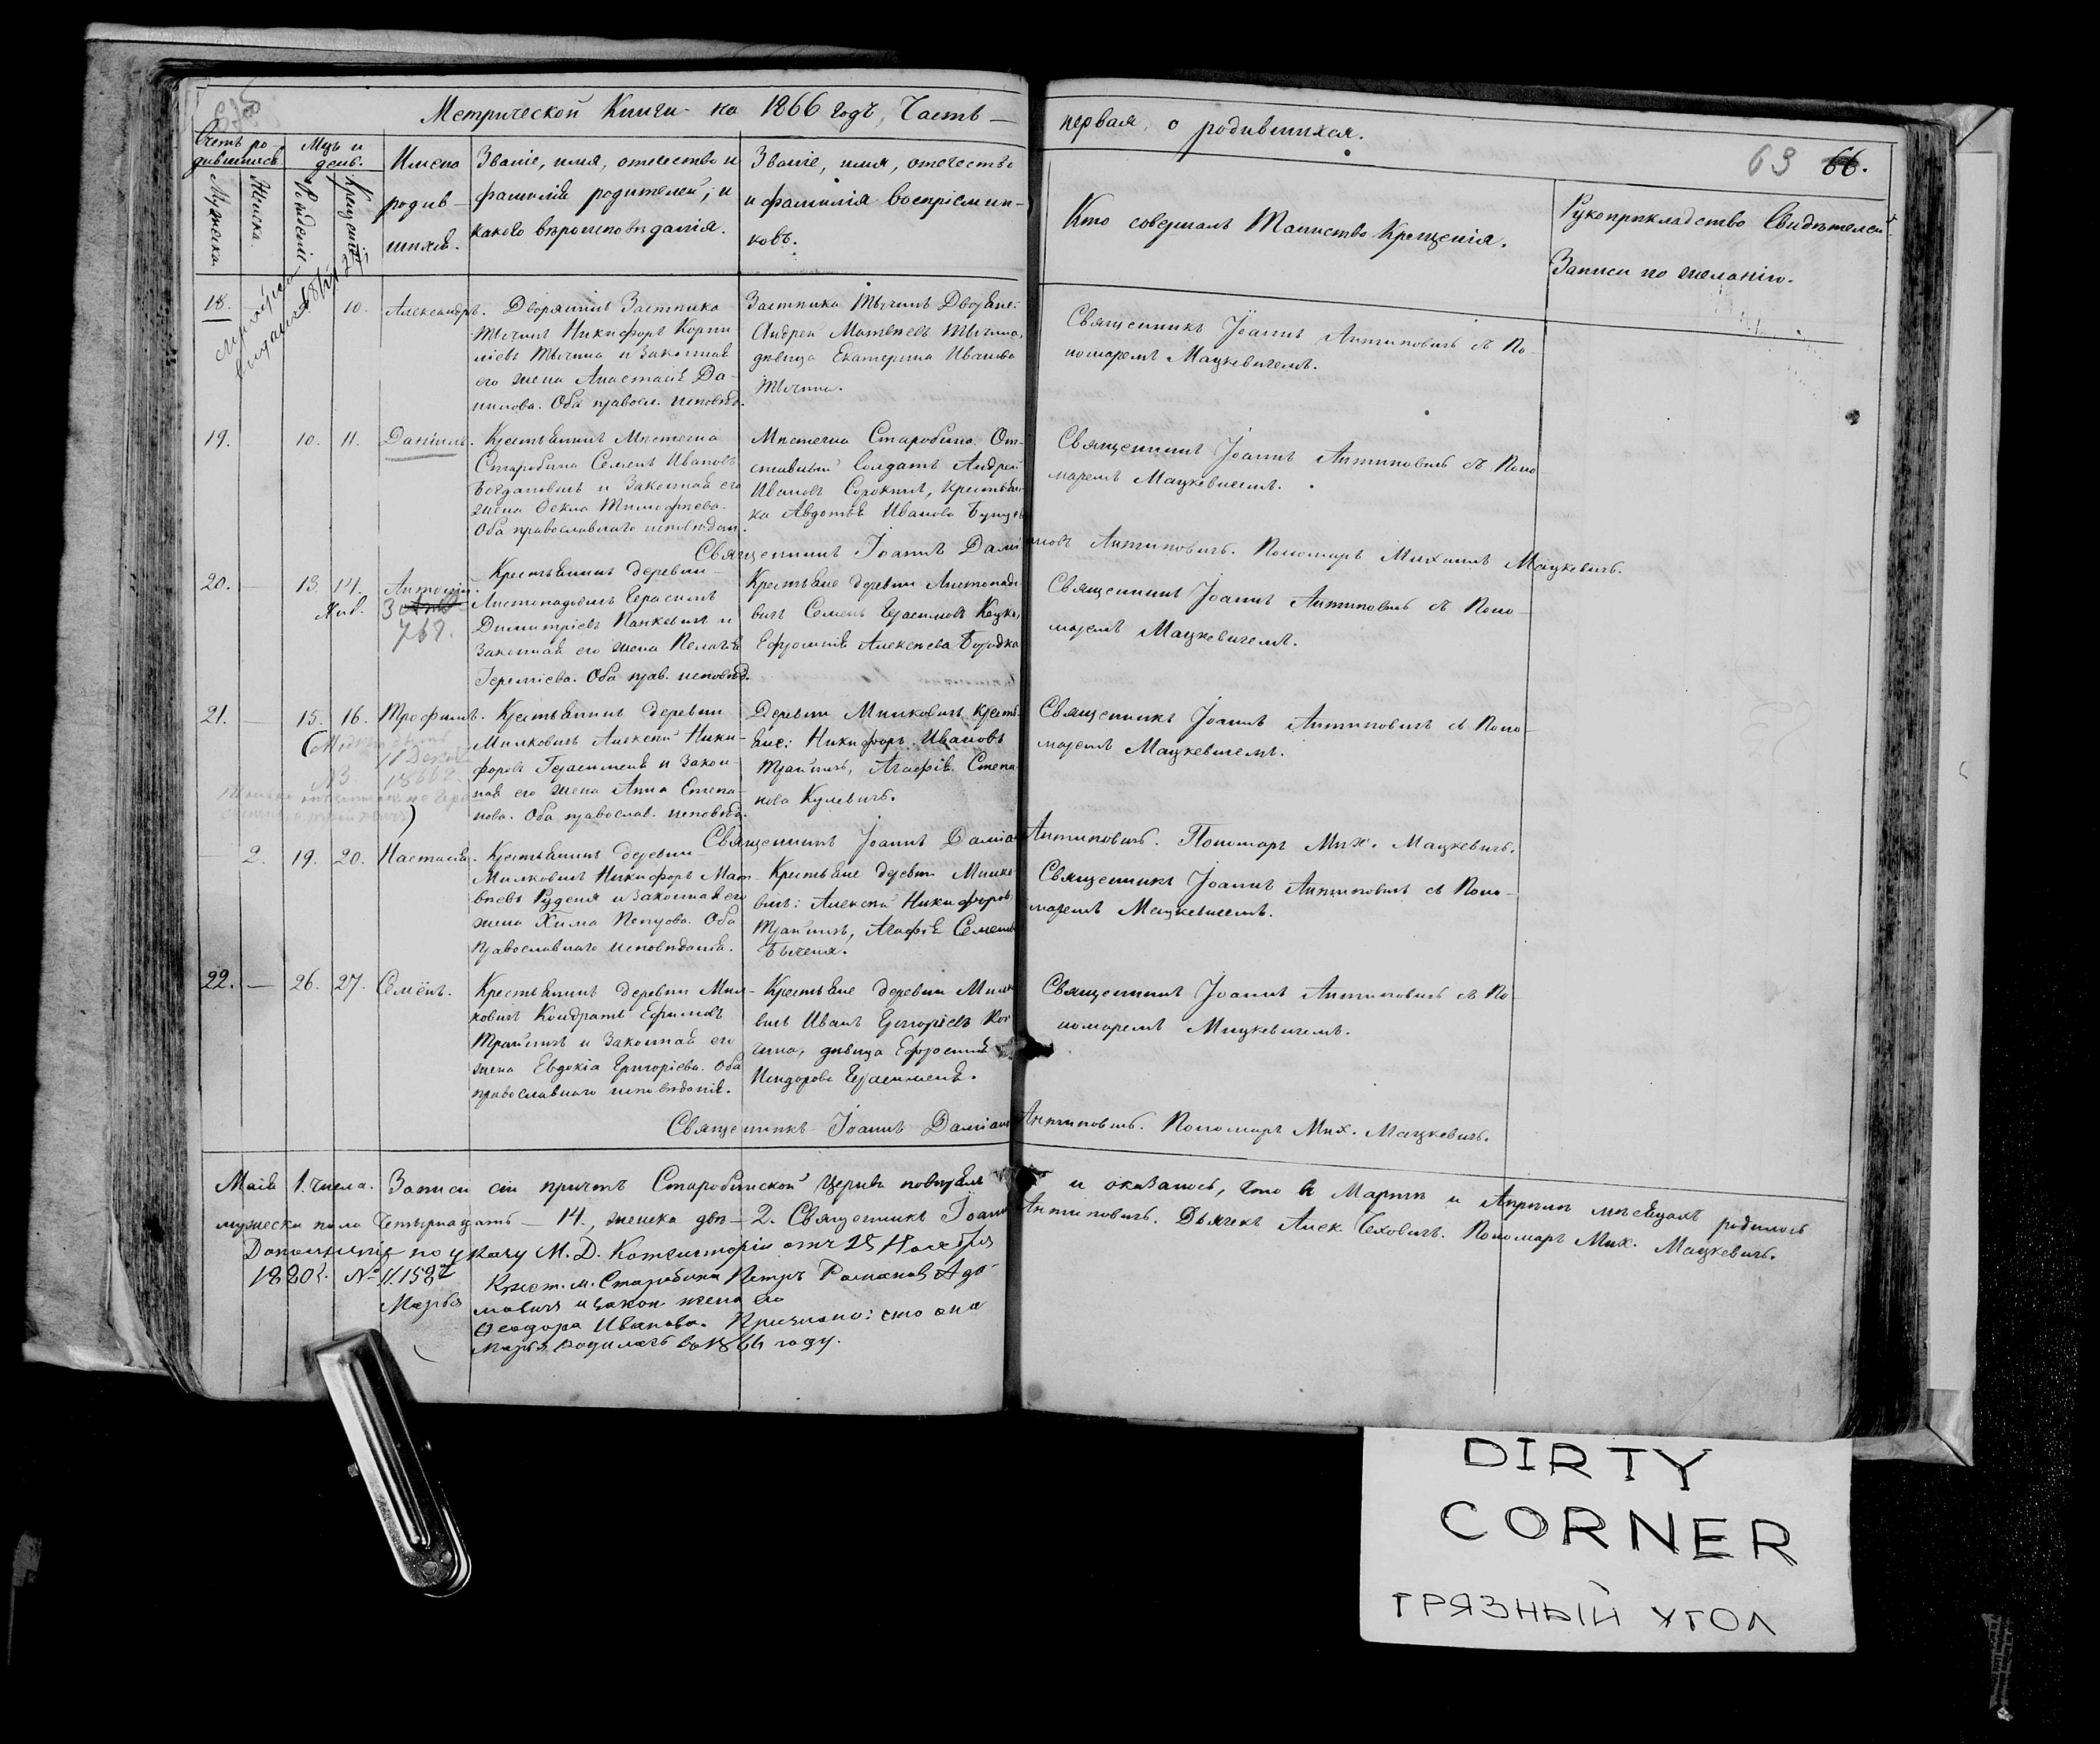 Метрической Книги на 1866 годъ, Часть —
первая, о родившихся.
63 66.
Счетъ ро-
дившихся.
Мужеска.
Женска.
Мцъ и
день.
Рожденія
Крещенія
Имена
родив-
шихся.
Званіе, имя, отечество и
фамилія родителей, и
какого вѣроисповѣданія.
Званіе, имя, отечество
и фамилія воспріемни-
ковъ.
Кто совершалъ Таинство Крещенія.
Рукоприкладство Свидѣтелей
Записи по желанію.
18. 10. Александръ.
Дворянинъ Застѣнка
Тычинъ Никифоръ Корни
ліевъ Тычина и Законная
его жена Анастасія Да-
нилова. Оба правосл. исповѣд.
Застѣнка Тычинъ Дворяне:
Андрей Матвѣевъ Тычина,
дѣвица Екатерина Иванова
Тычина.
Священникъ Іоаннъ Антиповичъ съ По-
номаремъ Мацкевичемъ.
19. — 10. 11. Даніилъ.
Крестьянинъ Мѣстечка
Старобина Семенъ Ивановъ
Богдановичъ и Законная его
жена Ѳекла Тимофѣева.
Оба православнаго исповѣдан.
Мѣстечка Старобина. От-
ставный Солдатъ Андрей
Ивановъ Сорокинъ, Крестьян-
ка Авдотья Иванова
Священникъ Іоаннъ Антиповичъ съ Поно-
маремъ Мацкевичемъ.
Священникъ Іоаннъ Даміановъ Антиповичъ. Пономарь Михаилъ Мацкевичъ.
20. — 13. 14. Антоній.
768.
Крестьянинъ деревни
Листопадовичъ Герасимъ
Димитріевъ Панкевичъ и
Законная его жена Пелагія
Іереміева. Оба прав. исповѣд.
Крестьяне деревни Листопадо-
вичъ Семенъ Герасимовъ Кацко,
Ефросинія Алексѣева Бородка
Священникъ Іоаннъ Антиповичъ съ Поно-
маремъ Мацкевичемъ.
21. — 15. 16. Трофимъ.
Крестьянинъ деревни
Милковичъ Алексѣй Ники-
форовъ Герасименя и Закон-
ная его жена Анна Степа-
нова. Оба православ. исповѣд.
Деревни Милковичъ крестья-
не: Никифоръ Ивановъ
Трайчикъ, Агафія Степа-
нова Кулевичъ.
Священникъ Іоаннъ Антиповичъ съ Поно-
маремъ Мацкевичемъ.
Священникъ Іоаннъ Даміан. Антиповичъ. Пономарь Мих. Мацкевичъ.
2. 19. 20. Настасія.
Крестьянинъ деревни
Милковичъ Никифоръ Мат-
вѣевъ Руденя и Законная его
жена Хима Петрова. Оба
Православнаго исповѣданія.
Крестьяне деревни Милко-
вичъ: Алексѣй Никифоровъ
Трайчикъ, Агафія Семенова
Быченя.
Священникъ Іоаннъ Антиповичъ съ Поно-
маремъ Мацкевичемъ.
22. — 26. 27. Семёнъ.
Крестьянинъ деревни Мил-
ковичъ Кондратъ Ефимовъ
Трайчикъ и Законная его
жена Евдокія Григорьева. Оба
православнаго исповѣданія.
Крестьяне деревни Милко-
вичъ Иванъ Григорьевъ
дѣвица Ефросинія
Исидорова Герасименя.
Священникъ Іоаннъ Антиповичъ съ По-
номаремъ Мацкевичемъ.
Священникъ Іоаннъ Даміан. Антиповичъ. Пономарь Мих. Мацкевичъ.
Маія 1. числа. Записи сіи причтъ Старобинской Церкви повѣрялъ и оказалось, что въ Мартѣ и Апрѣлѣ мѣсяцахъ родилось
мужеска пола Четырнадцать — 14., женска двѣ — 2. Священникъ Іоаннъ Антиповичъ. Дьячекъ Алек. Чеховичъ. Пономарь Мих. Мацкевичъ.
Дополненіе по указу М. Д. Консисторіи отъ 25 Ноября
1880 г. № 11.158
Марья
Крест. м. Старобина Петръ Романовъ Ада-
мовичъ и закон. жена его
Ѳеодора Иванова. Признано: что она
Марья родилась въ 1866 году.
DIRTY
CORNER
ГРЯЗНЫЙ УГОЛ